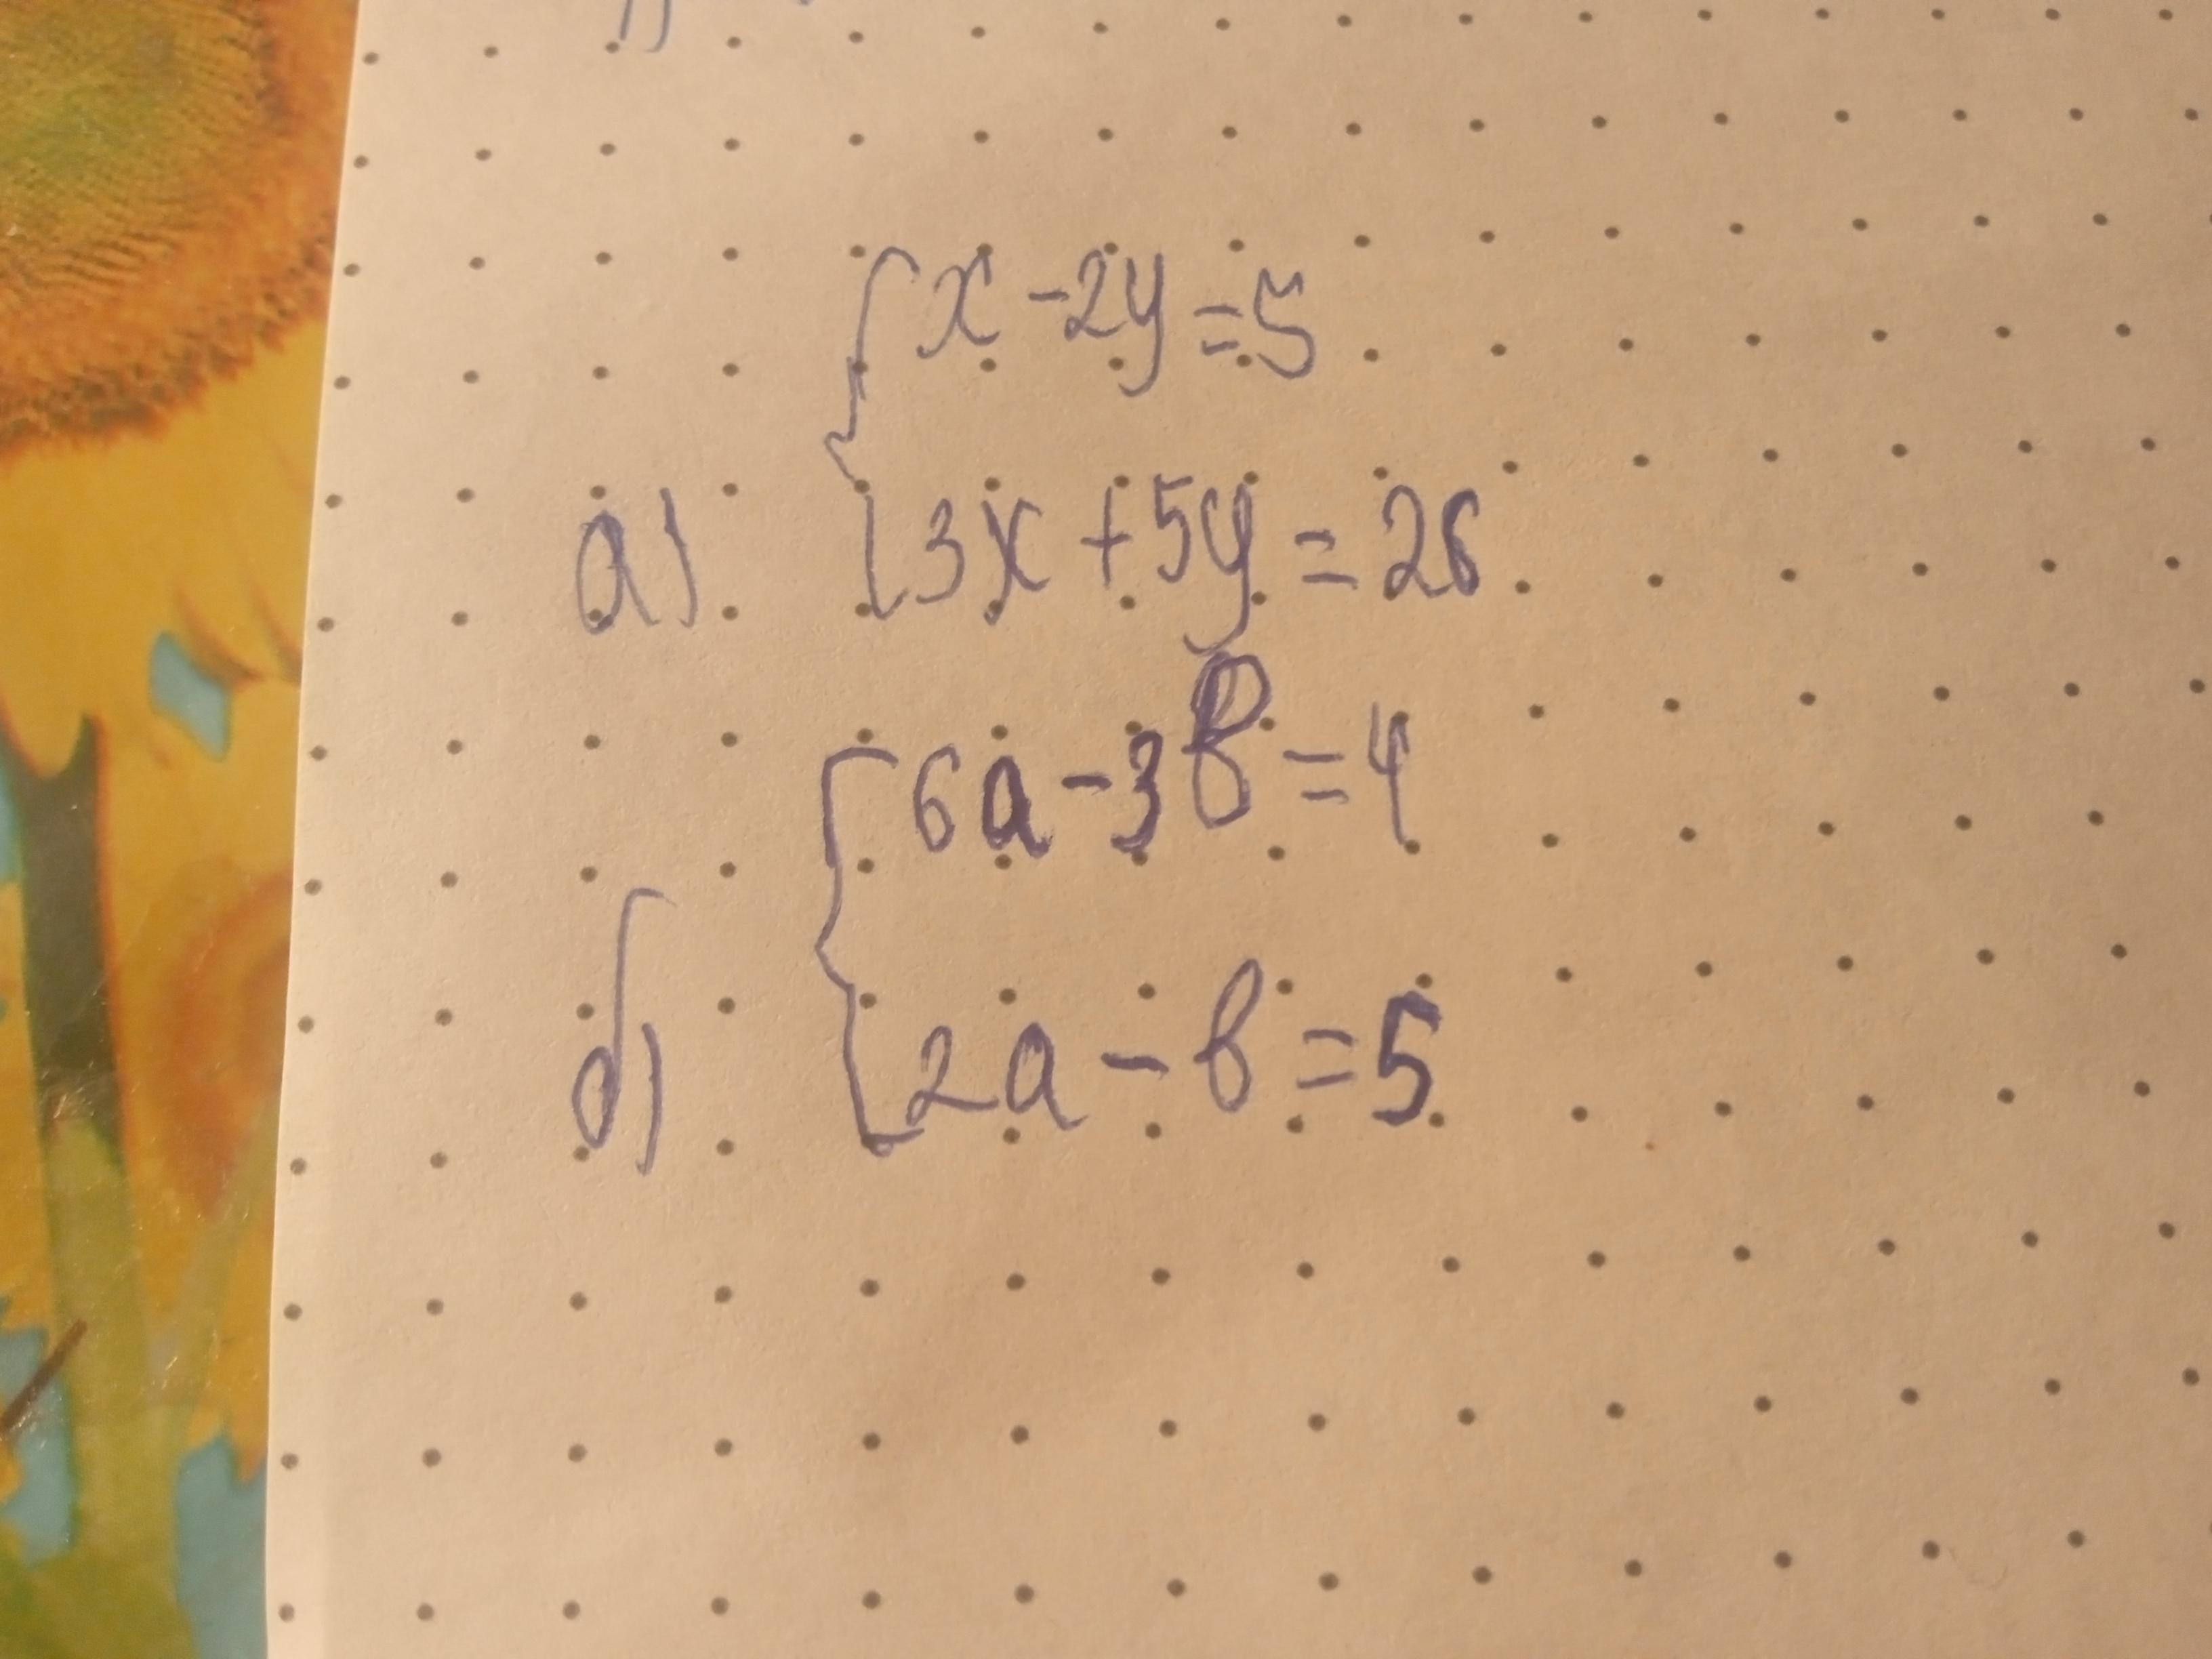 x - 2y = 5
а) 3x + 5y = 26
6a - 3b = 4
б) 2a - b = 5